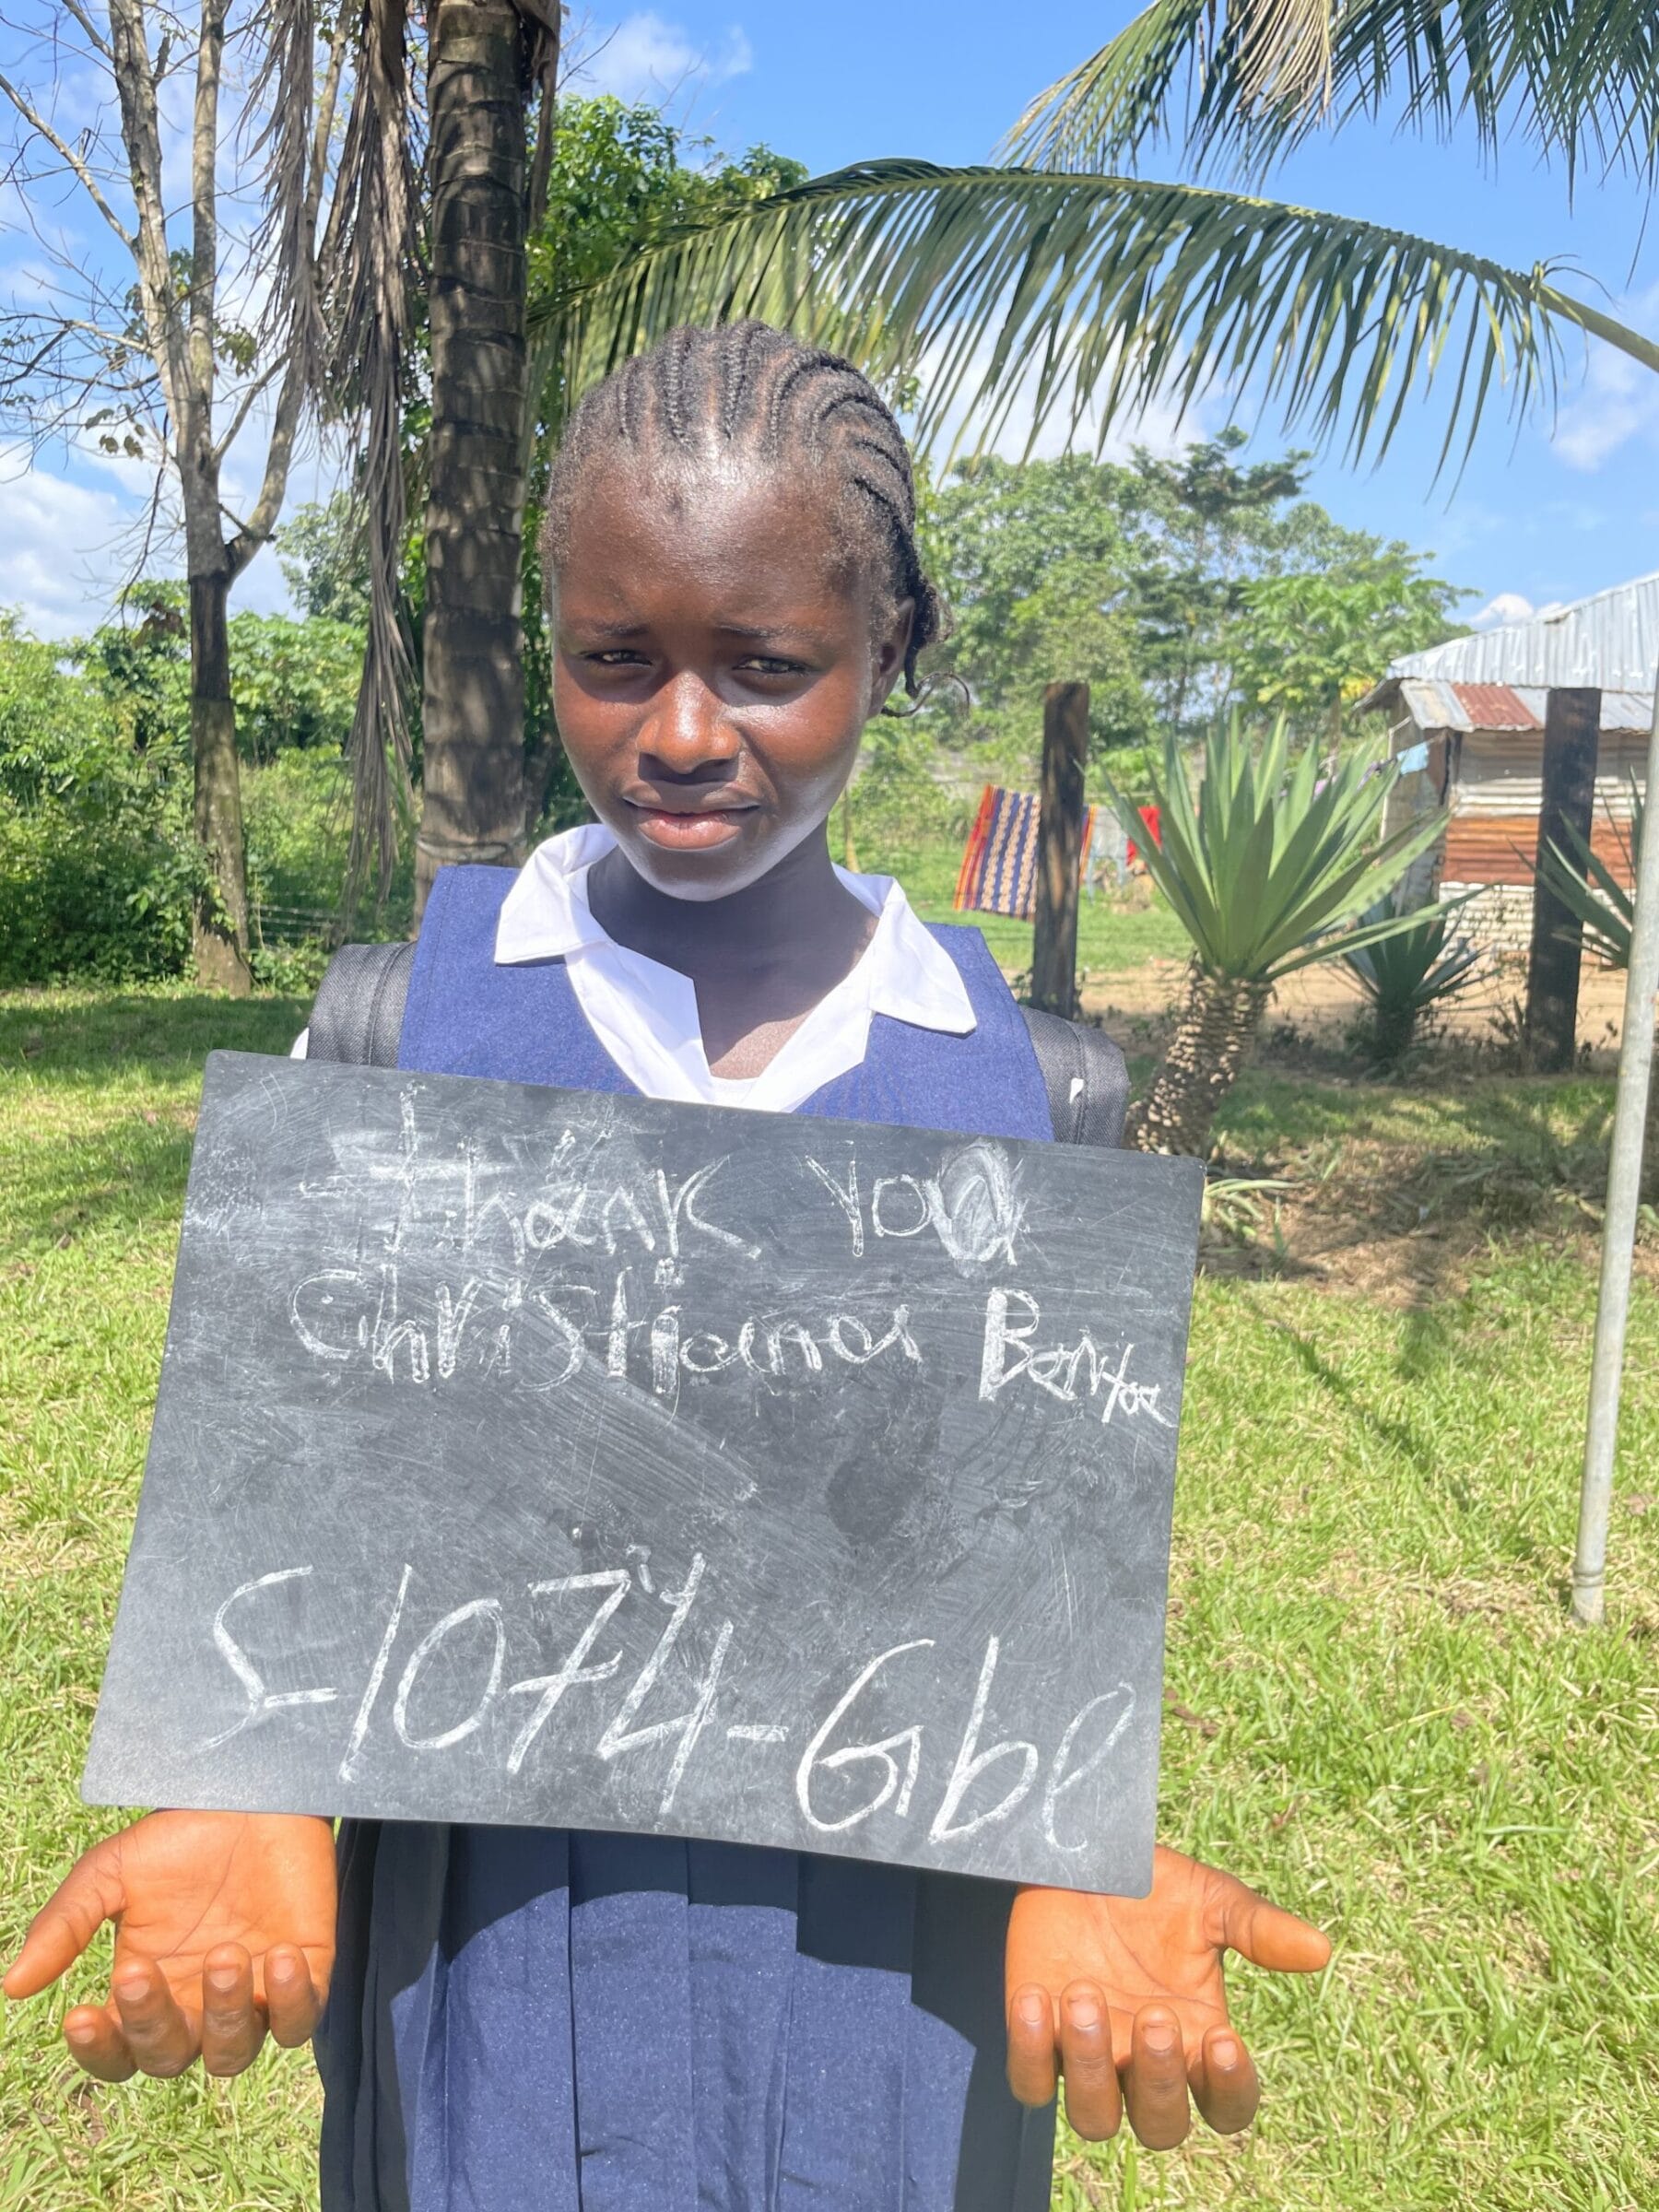 Thank You
Christiana Bentoe
S-1074-Gbl